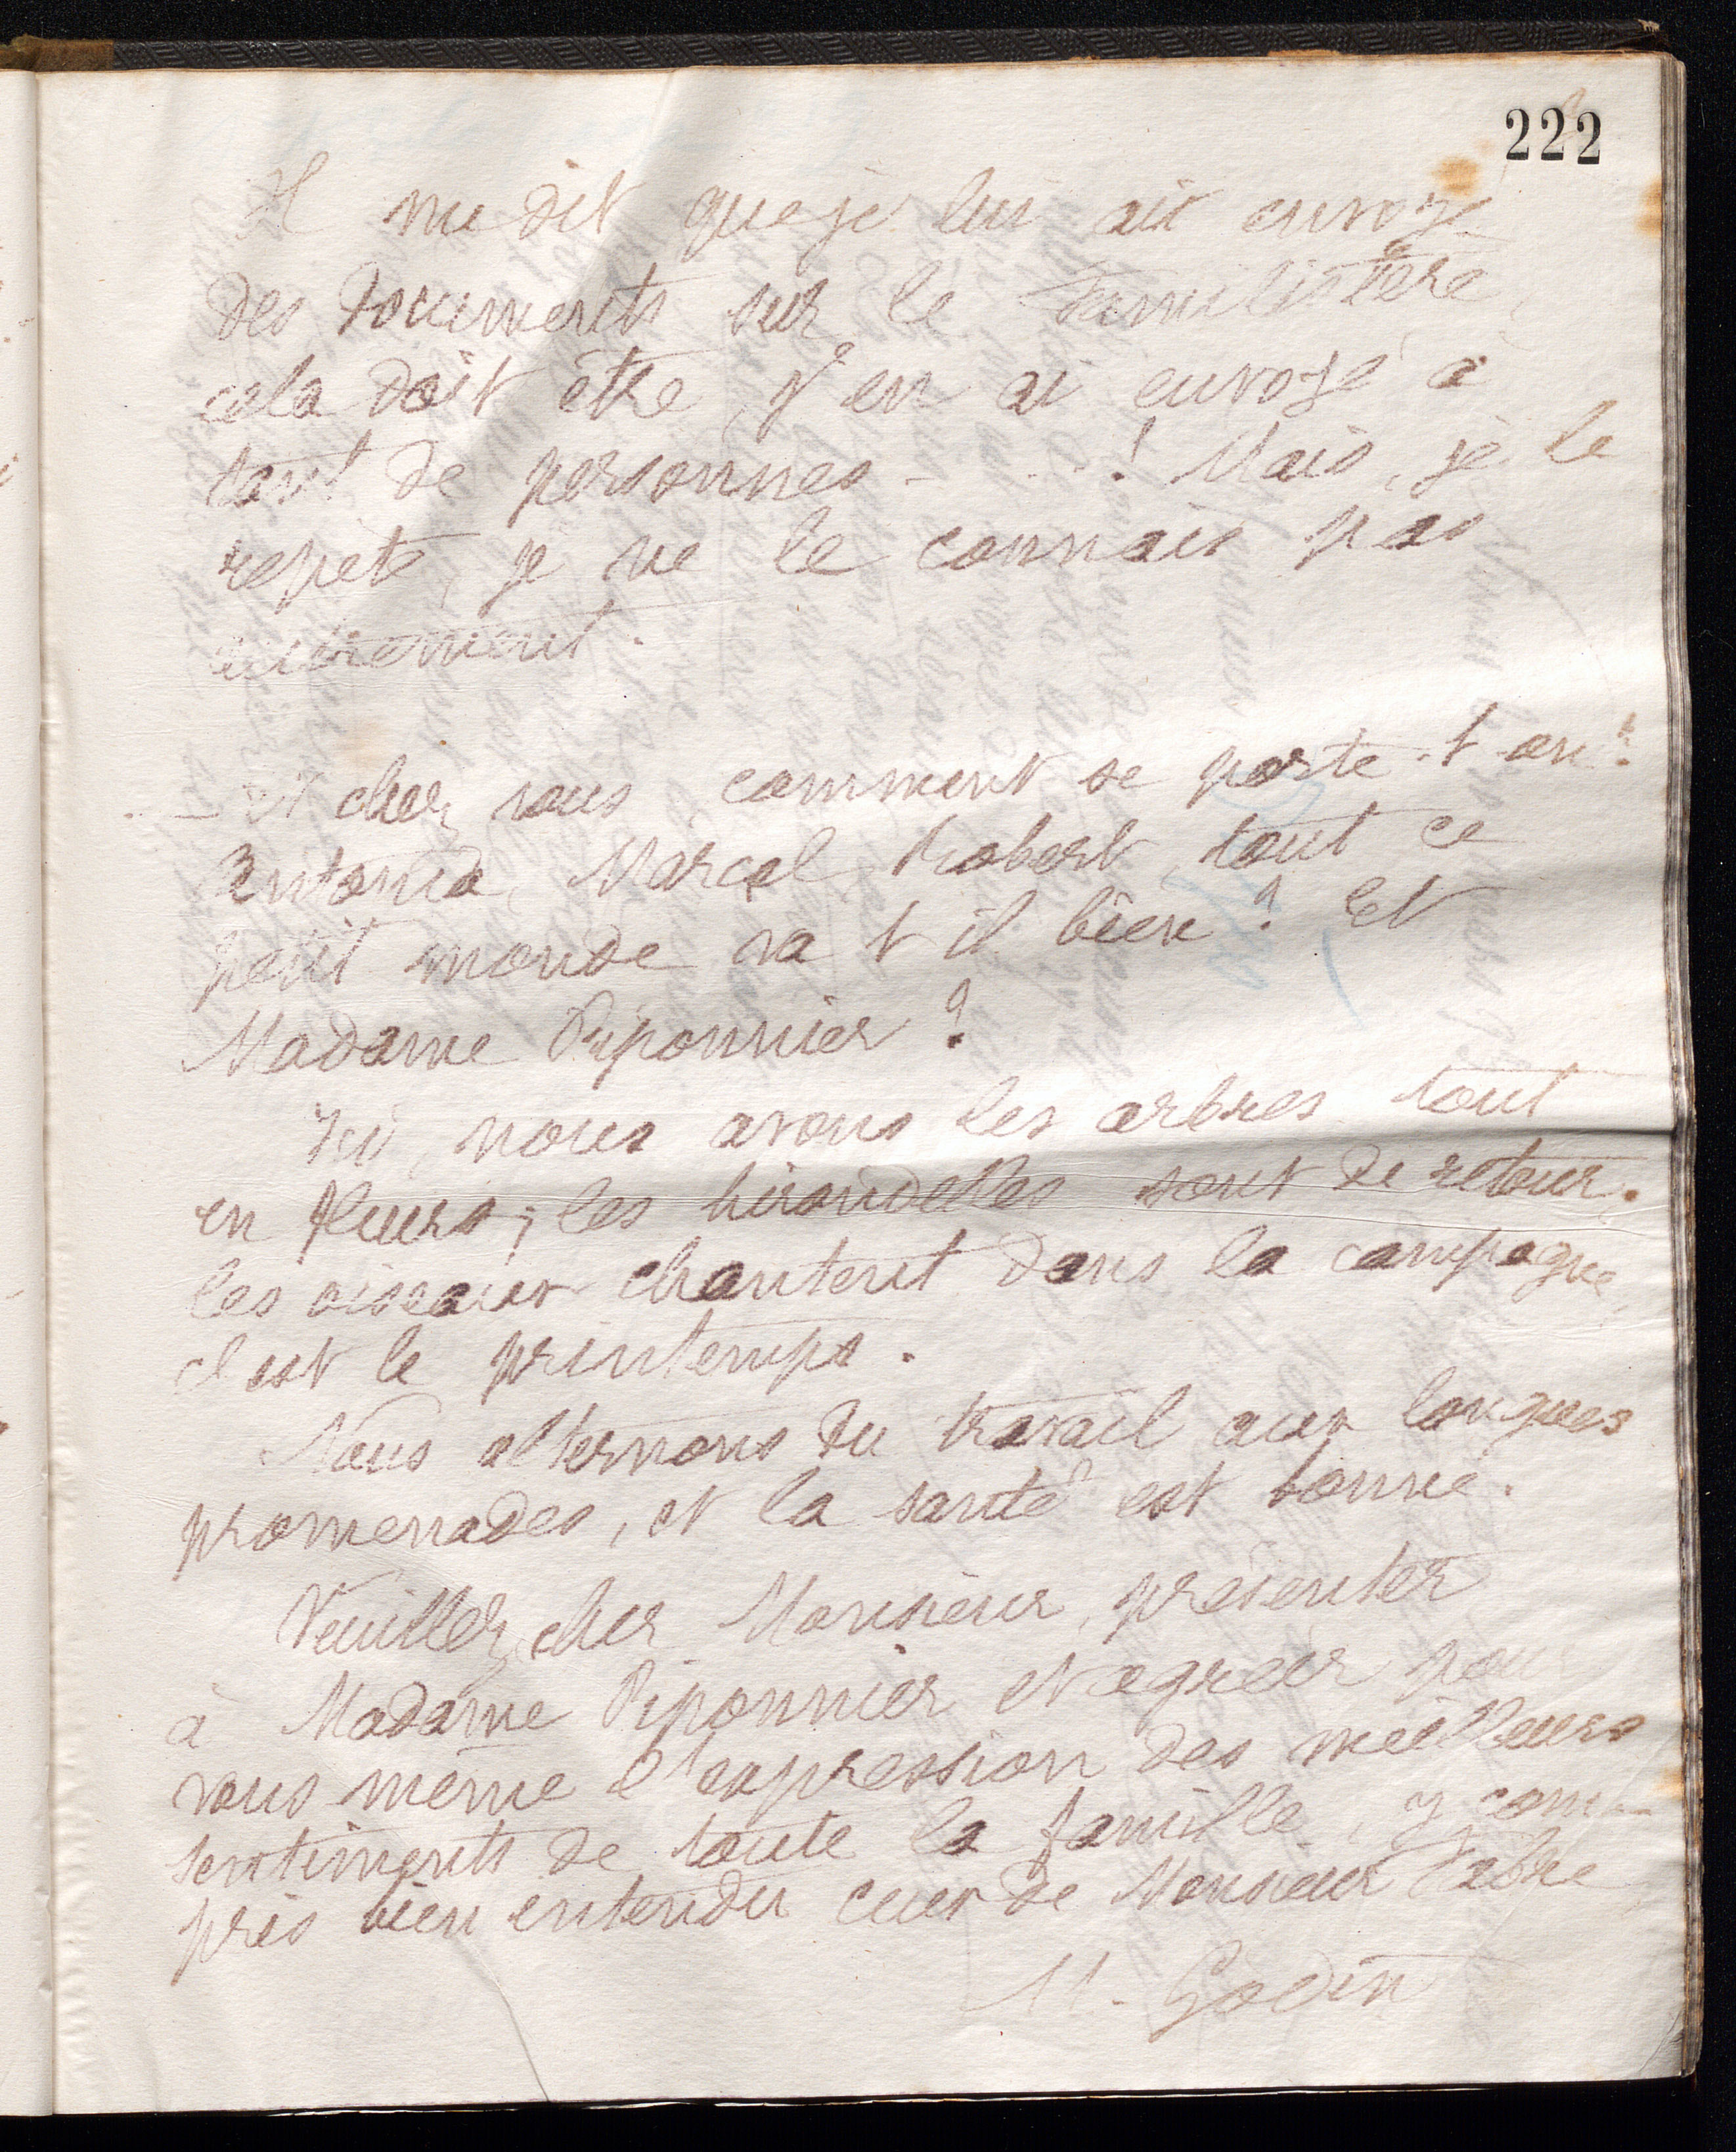 222
Il me dit que je lui ai envoyé
des documents sur le Familistère,
cela doit être, j'en ai envoyé à
tant de personnes - . . . ! Mais, je le
répète, je ne le connais pas
autrement.
. - Et chez vous, comment se porte-t-on ?
Antonia, Marcel, Robert, tout ce
petit monde va t il bien ? Et
Madame Piponnier ?
Ici, nous avons les arbres tout
en fleurs ; les hirondelles sont de retour.
les oiseaux chantent dans la campagne,
c'est le printemps.
Nous alternons du travail aux longues
promenades, et la santé est bonne.
Veuillez, cher Monsieur, présenter
à Madame Piponnier et agréer pour
vous même l'expression des meilleurs
sentiments de toute la famille, y com-
pris bien entendu ceux de Monsieur Fabre
M. Godin